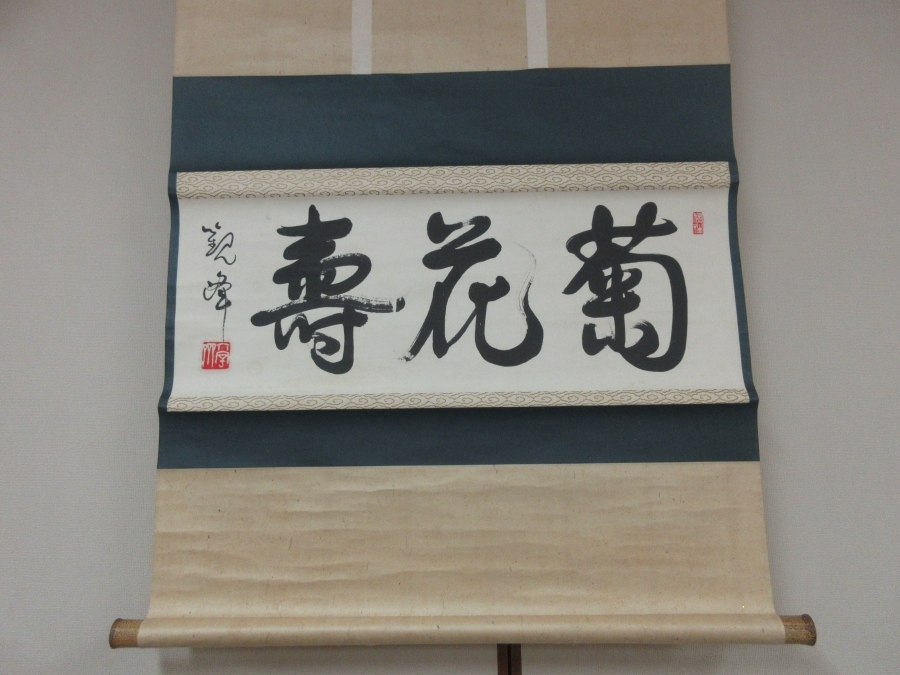 菊花壽
觀峰